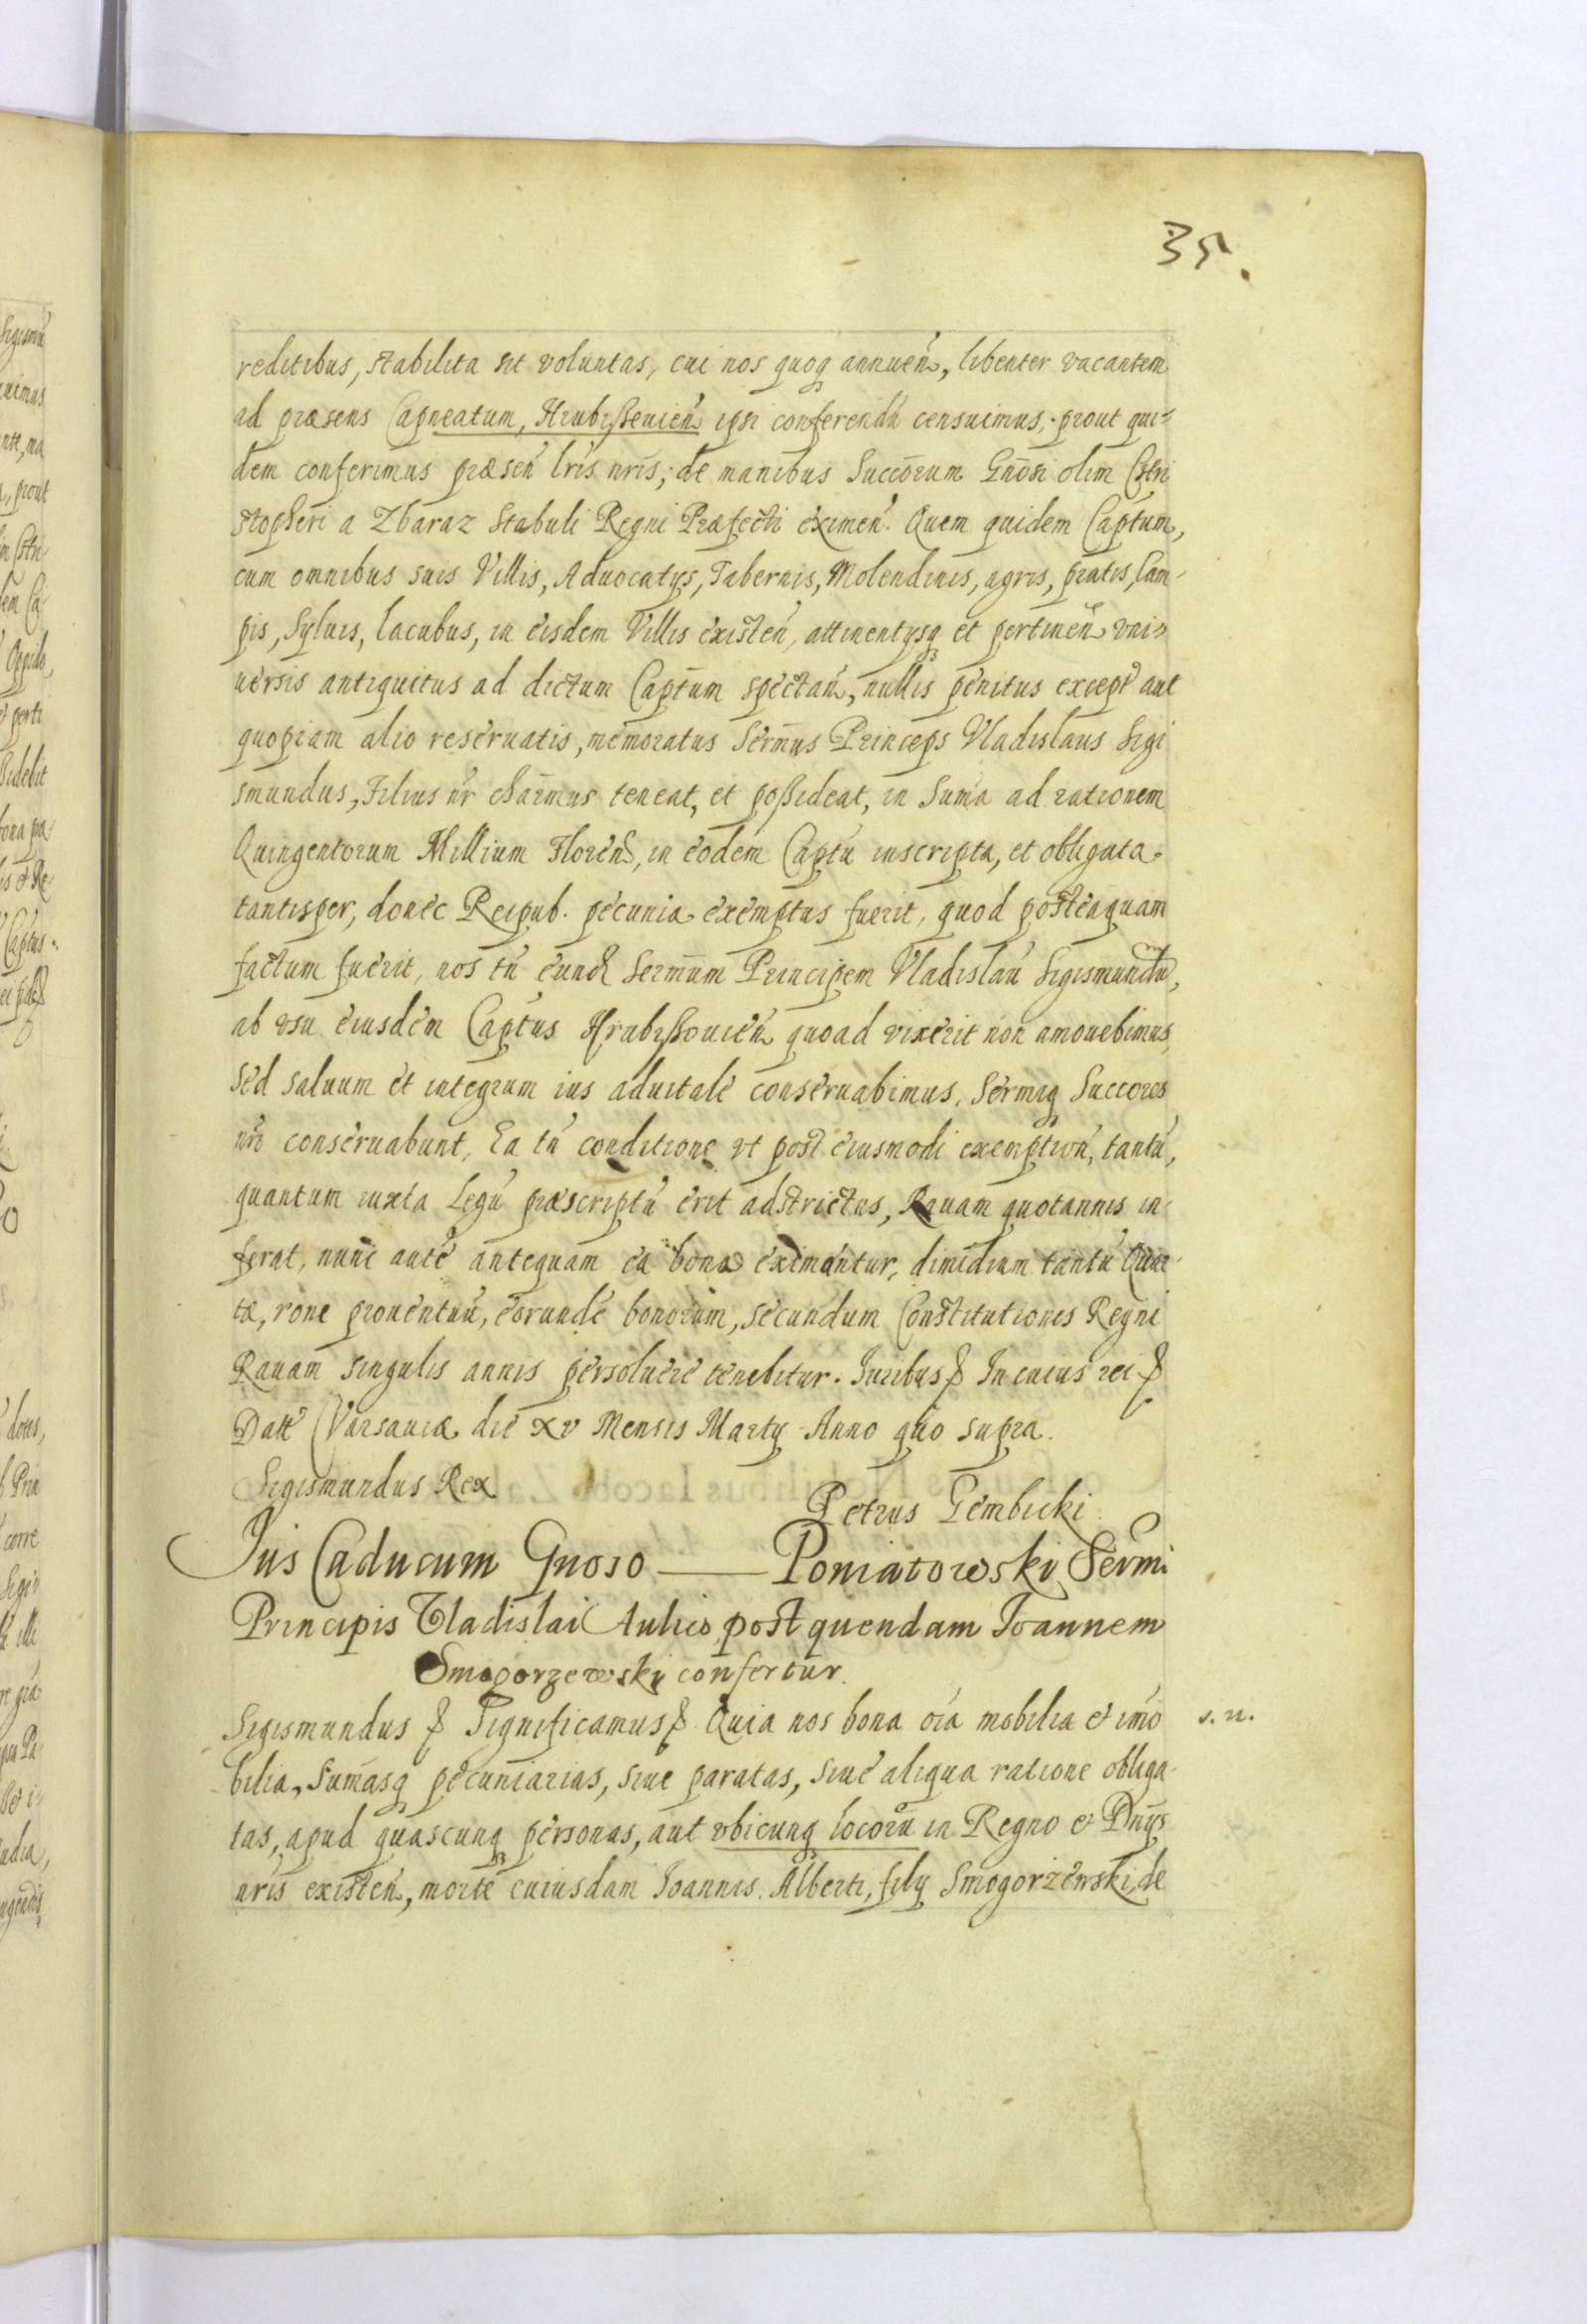 35.
reditibus, stabilita sit voluntas, cui nos quoq annuen̄, libenter vacantem
ad præsens Capneatum, Hrubißeuien̄ ipsi conferendū censuimus, prout qui-
dem conferimus præsen̄ lr̄is nr̄is; de manibus Succōrum Gn̄osi olim Chri
stopheri a Zbaraz Stabuli Regni Præfecti eximen̄. Quem quidem Cap̄tum,
cum omnibus suis Villis, Aduocatijs, Tabernis, Molendinis, agris, pratis, Cam-
pis, Syluis, lacubus, in eisdem Villis existen̄, attinentijsq et pertinen̄ vni-
uersis antiquitus ad dictum Cap̄tum spectan̄, nullis penitus except̄ aut
quopiam alio reseruatis, memoratus Serm̄us Princeps Vladislaus Sigi
smundus, Filius nr̄ char̄mus teneat, et poßideat, in Sum̄a ad rationem
Quingentorum Millium Floren̄, in eodem Cap̄tu inscripta, et obligata
tantisper, donec Reipub. pecunia exemptus fuerit, quod posteaquam
factum fuerit, nos tn̄ eund Serm̄um Principem Vladislaū Sigismundū,
ab vsu eiusdem Cap̄tus Hrubißouien̄ quoad vixerit non amouebimus,
sed saluum et integrum ius aduitale conseruabimus, Sermiq Succores
nr̄o conseruabunt, Ea tn̄ conditione vt post eiusmodi exemption̄, tantū,
quantum iuxta Legū præscriptū erit adstrictus, Rauam quotannis in-
ferat, nunc autē antequam ea bona eximantur, dimidiam tantū Quar-
tæ, rone prouentuū, eorundē bonorum, secundum Constitutiones Regni
Rauam singulis annis persoluere tenebitur. Iuribus & In cuius rei &
Datt Varsauiæ die xv Mensis Martij Anno quo supra.
Sigismundus Rex
Petrus Gembicki
Jus Caducum Gnoso —— Poniatowski, Sermi
Principis Vladislai Aulico, post quendam Ioannem
Smogorzewsky confertur.
Sigismundus & Significamus & Quia nos bona oīa mobilia et im̄o s. n.
bilia, Sum̄asq pecuniarias, siue paratas, siue aliqua ratione obliga-
tas, apud quascunq personas, aut vbicunq locorū in Regno et Dn̄ijs
nr̄is existen̄, morte cuiusdam Ioannis Alberti, filij Smogorzewski, de